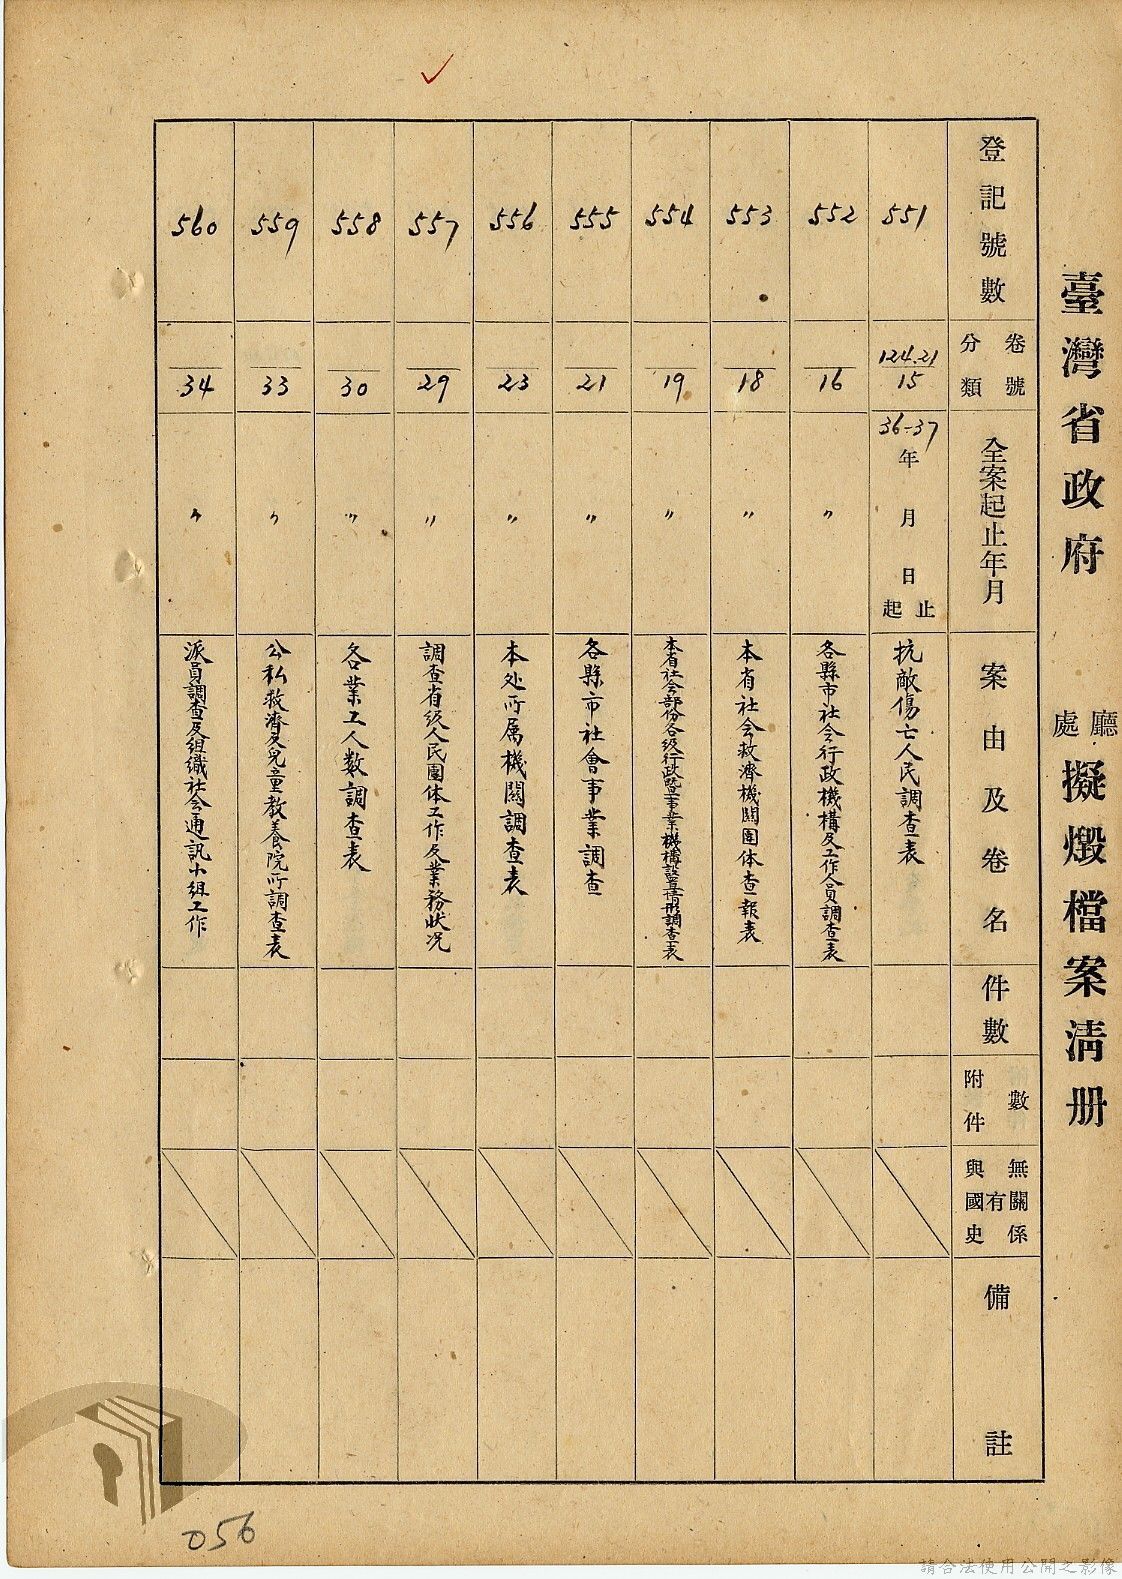 臺灣省政府 廳處 擬燬檔案清册
登記號數
卷號 分類
全案起止年月
案由及卷名
件數
附件 數
與國史 有 無關係
備註
551
124.21
15
36-37
年 月 日 起 止
抗敵傷亡人民調查表
552
16
〃
各縣市社会行政機構及工作人員調查表
553
18
〃
本省社会救濟機關團体查報表
554
19
〃
本省社会部份各級行政暨事業機構設置情形調查表
555
21
〃
各縣市社會事業調查
556
23
〃
本处所属機關調查表
557
29
〃
調查省級人民團体工作及業務狀况
558
30
〃
各業工人数調查表
559
33
〃
公私救濟及兒童教養院所調查表
560
34
〃
派員調查及組織社会通訊小組工作
056
請合法使用公開之影像